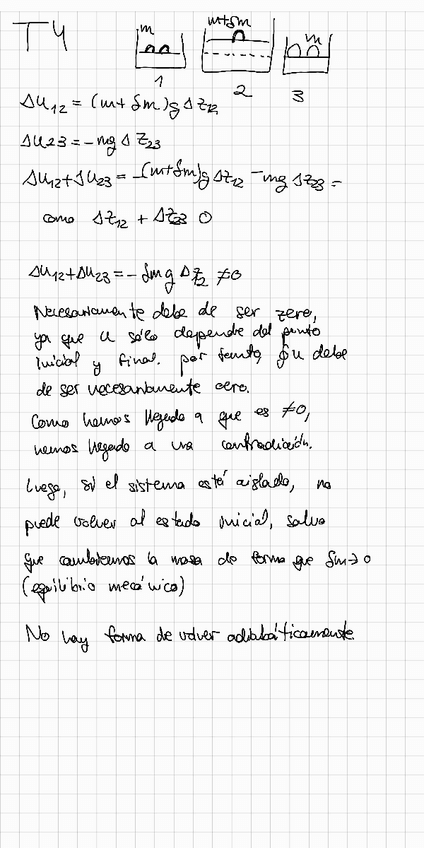 T4
m
m+δm
m
1
2
3
ΔU12 = (m+δm)g Δz12
ΔU23 = -mg Δz23
ΔU12+ΔU23 = -(m+δm)g Δz12 -mg Δz23 =
como Δz12 + Δz23 0
ΔU12+ΔU23 = -δm g Δz12 ≠0
Necesariamente debe de ser zero,
ya que U sólo depende del punto
inicial y final. por tanto, ∮u debe
de ser necesariamente cero.
Como hemos llegado a que es ≠0,
hemos llegado a una contradicción.
Luego, si el sistema está aislado, no
puede volver al estado inicial, salvo
que cambiemos la masa de forma que δm→0
(equilibrio mecánico)
No hay forma de volver adiabáticamente